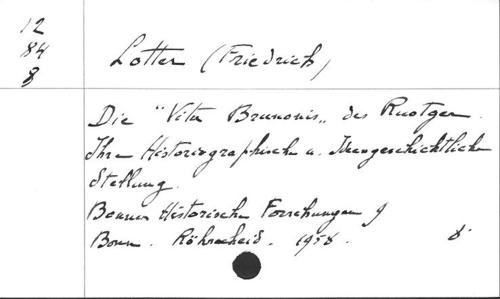 12
84
8
Lotter (Friedrich)
Die "Vita Brunonis" des Ruotger.
Ihre Historiographische u. Ideengeschichtliche
Stellung.
Bonner Historische Forschungen 9
Bonn. Röhrscheid. 1958. 8°